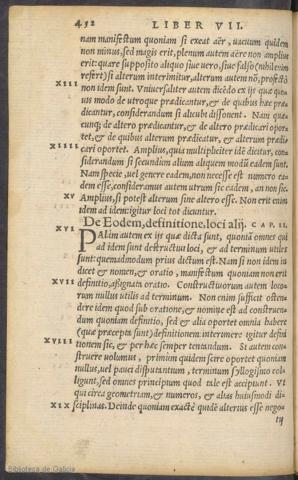 452 LIBER VII.
nam manifestum quoniam si exeat aër, vacuum quidem
non minus, sed magis erit, plenum autem aëre non amplius
erit: quare supposito aliquo siue vero, siue falso (nihil enim
refert) si alterum interimitur, alterum autem nō, profectò
XIII non idem sunt. Vniuersaliter autem dicēdo ex ijs quæ quo
uis modo de vtroque prædicantur, & de quibus hæc præ
dicantur, considerandum si alicubi dissonent. Nam quæ
cunq; de altero prædicantur, & de altero prædicari opor-
tet, & de quibus alterum prædicatur, & alterum prædi-
XIIII cari oportet. Amplius, quia multipliciter idē dicitur, con
siderandum si secundùm alium aliquem modū eadem sunt.
Nam specie, vel genere eadem, non necesse est numero ea-
dem esse, consideramus autem vtrum sic eadem, an non sic.
XV Amplius, si potest alterum sine altero esse. Non erit enim
idem ad idem: igitur loci tot dicantur.
De Eodem, definitione, loci alij. CAP. II.
XVI PAlàm autem ex ijs quæ dicta sunt, quoniā omnes qui
ad idem sunt destructiui loci, & ad terminum vtiles
sunt: quemadmodum prius dictum est. Nam si non idem in
dicet & nomen, & oratio, manifestum quoniam non erit
XVII definitio, assignata oratio. Constructiuorum autem loco-
rum nullus vtilis ad terminum. Non enim sufficit osten-
dere idem quod sub oratione, & nomine est ad construen-
dum quoniam definitio, sed & alia oportet omnia habere
(quæ præcepta sunt) definitionem interimere igitur defini
XVIII tionem sic, & per hæc semper tentandum. Si autem con-
struere volumus, primùm quidem scire oportet quoniam
nullus, vel pauci disputantium, terminum syllogismo col-
ligunt, sed omnes principium quod tale est accipiunt. Vt
qui circa geometriam, & numeros, & alias huiusmodi di-
XIX sciplinas. Deinde quoniam exactè quidē alterius esse nego-
tij
Biblioteca de Galicia